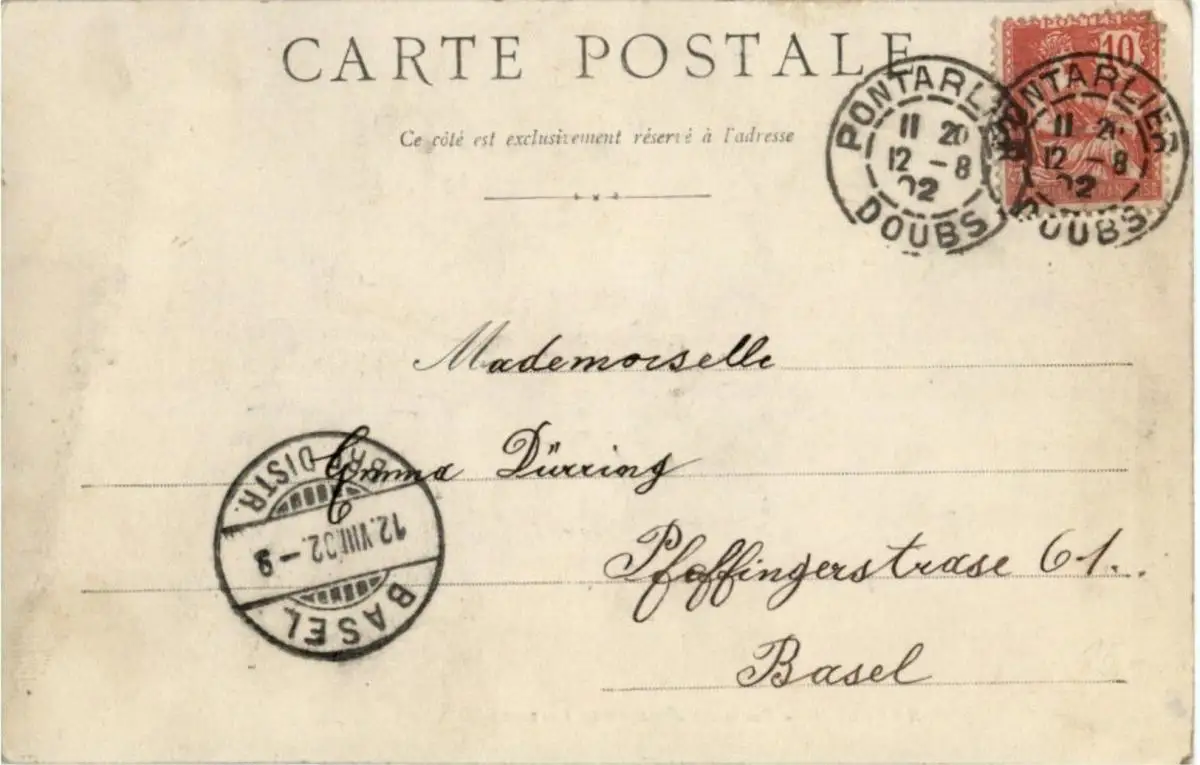 CARTE POSTALE
Ce côté est exclusivement réservé à l'adresse
POSTES
10
PONTARLIER
11 20
12 - 8
02
DOUBS
PONTARLIER
11 20
12 - 8
02
DOUBS
Mademoiselle
Emma Dürring
Pfeffingerstrase 61.
Basel
BASEL
12.VIII.02.-9
BRF. DISTR.